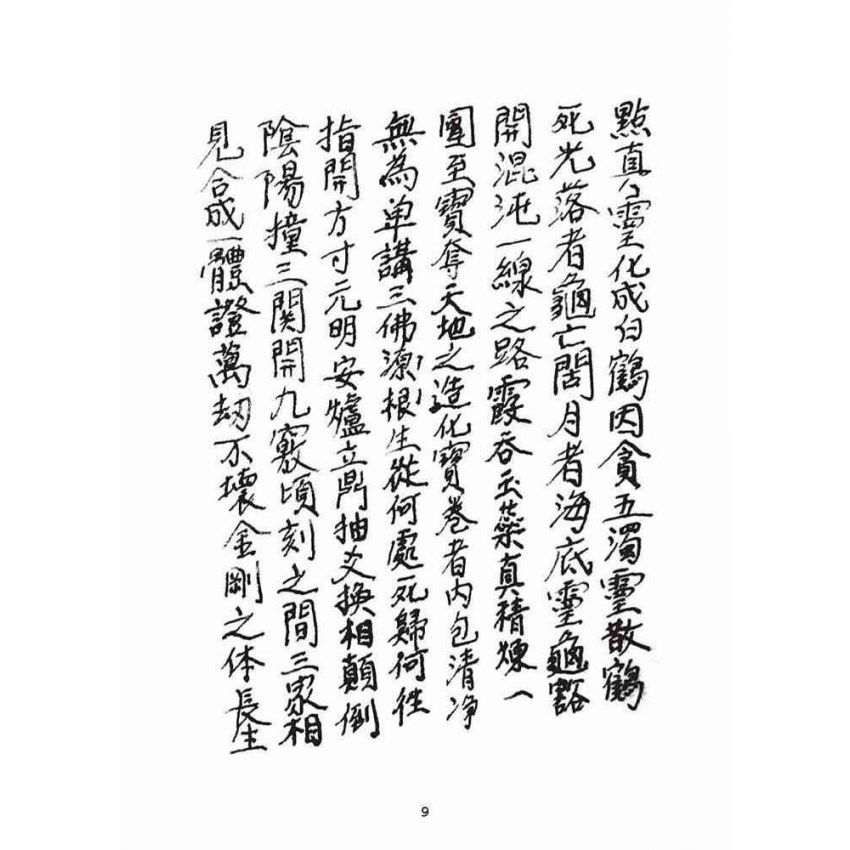 點真靈化成白鶴因貪五濁靈散鶴
死光落者龜亡閉月者海底靈龜豁
開混沌一線之路霞吞玉蘂真精煉一
團至寶奪天地之造化寶卷者內包清净
無為单講三佛源根生從何處死歸何徃
指開方寸元明安爐立鼎抽爻換相顛倒
陰陽撞三関開九竅頃刻之間三家相
見合成一體證萬劫不壞金剛之体長生
9